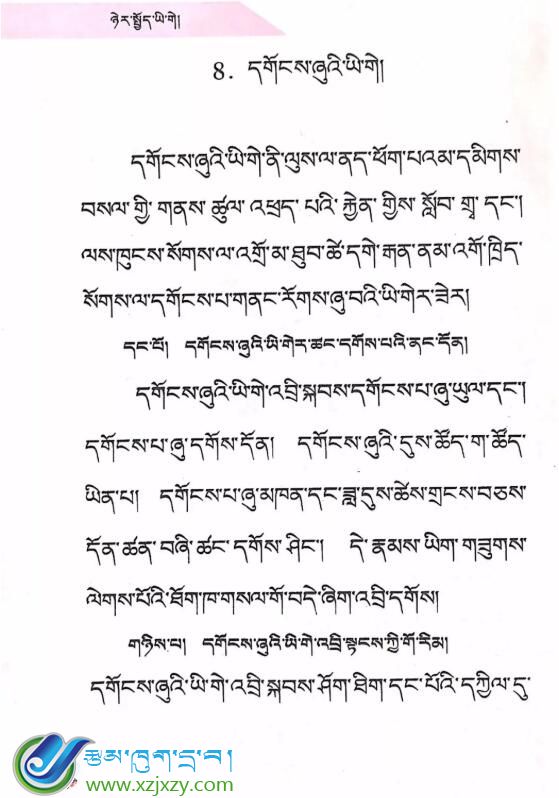 ཉེར་སྤྱོད་ཡི་གེ།
8. དགོངས་ཞུའི་ཡི་གེ།
དགོངས་ཞུའི་ཡི་གེ་ནི་ལུས་ལ་ནད་ཕོག་པའམ་དམིགས་
བསལ་གྱི་གནས་ཚུལ་འཕྲད་པའི་རྐྱེན་གྱིས་སློབ་གྲྭ་དང་།
ལས་ཁུངས་སོགས་ལ་འགྲོ་མ་ཐུབ་ཚེ་དགེ་རྒན་ནམ་འགོ་ཁྲིད་
སོགས་ལ་དགོངས་པ་གནང་རོགས་ཞུ་བའི་ཡི་གེར་ཟེར།
དང་པོ། དགོངས་ཞུའི་ཡི་གེར་ཚང་དགོས་པའི་ནང་དོན།
དགོངས་ཞུའི་ཡི་གེ་འབྲི་སྐབས་དགོངས་པ་ཞུ་ཡུལ་དང་།
དགོངས་པ་ཞུ་དགོས་དོན། དགོངས་ཞུའི་དུས་ཚོད་ག་ཚོད་
ཡིན་པ། དགོངས་པ་ཞུ་མཁན་དང་ཟླ་དུས་ཚེས་གྲངས་བཅས་
དོན་ཚན་བཞི་ཚང་དགོས་ཤིང་། དེ་རྣམས་ཡིག་གཟུགས་
ལེགས་པོའི་ཐོག་ཁ་གསལ་གོ་བདེ་ཞིག་འབྲི་དགོས།
གཉིས་པ། དགོངས་ཞུའི་ཡི་གེ་འབྲི་སྟངས་ཀྱི་གོ་རིམ།
དགོངས་ཞུའི་ཡི་གེ་འབྲི་སྐབས་ཤོག་ཐིག་དང་པོའི་དཀྱིལ་དུ་
རྩམ་ཁུག་དྲ་བ།
www.xzjxzy.com